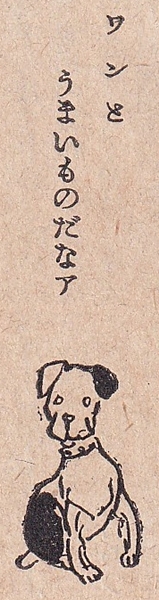 ワンと
うまいものだなア